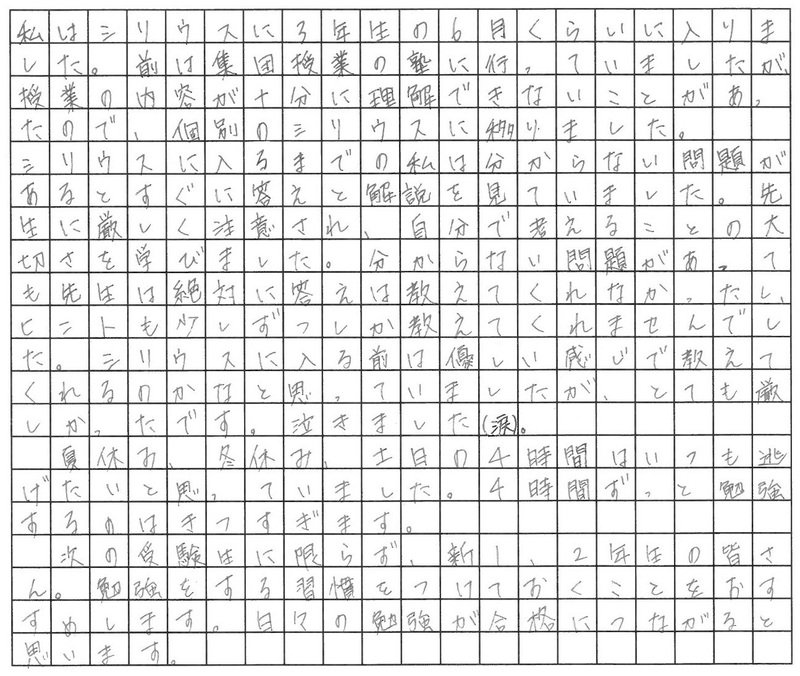 私はシリウスに3年生の6月くらいに入りま
した。前は集団授業の塾に行っていましたが、
授業の内容が十分に理解できないことがあっ
たので、個別のシリウスに移りました。
シリウスに入るまでの私は分からない問題が
あるとすぐに答えと解説を見ていました。先
生に厳しく注意され、自分で考えることの大
切さを学びました。分からない問題があって
も先生は絶対に答えは教えてくれなかったし、
ヒントも少しずつしか教えてくれませんでし
た。シリウスに入る前は優しい感じで教えて
くれるのかなと思っていましたが、とても厳
しかったです。泣きました(涙)。
夏休み、冬休み、土日の4時間はいつも逃
げたいと思っていました。4時間ずっと勉強
するのはきつすぎます。
次の受験生に限らず、新1、2年生の皆さ
ん。勉強をする習慣をつけておくことをおす
すめします。日々の勉強が合格につながると
思います。